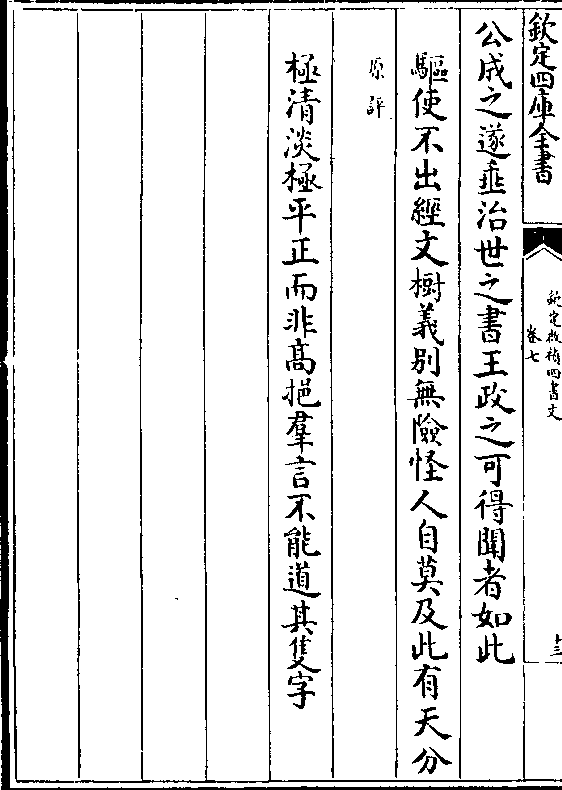 欽定四庫全書
欽定啟禎四書文
卷七
十三
公成之遂垂治世之書王政之可得聞者如此
驅使不出經文樹義別無險怪人自莫及此有天分
原評
極清淡極平正而非高挹羣言不能道其隻字